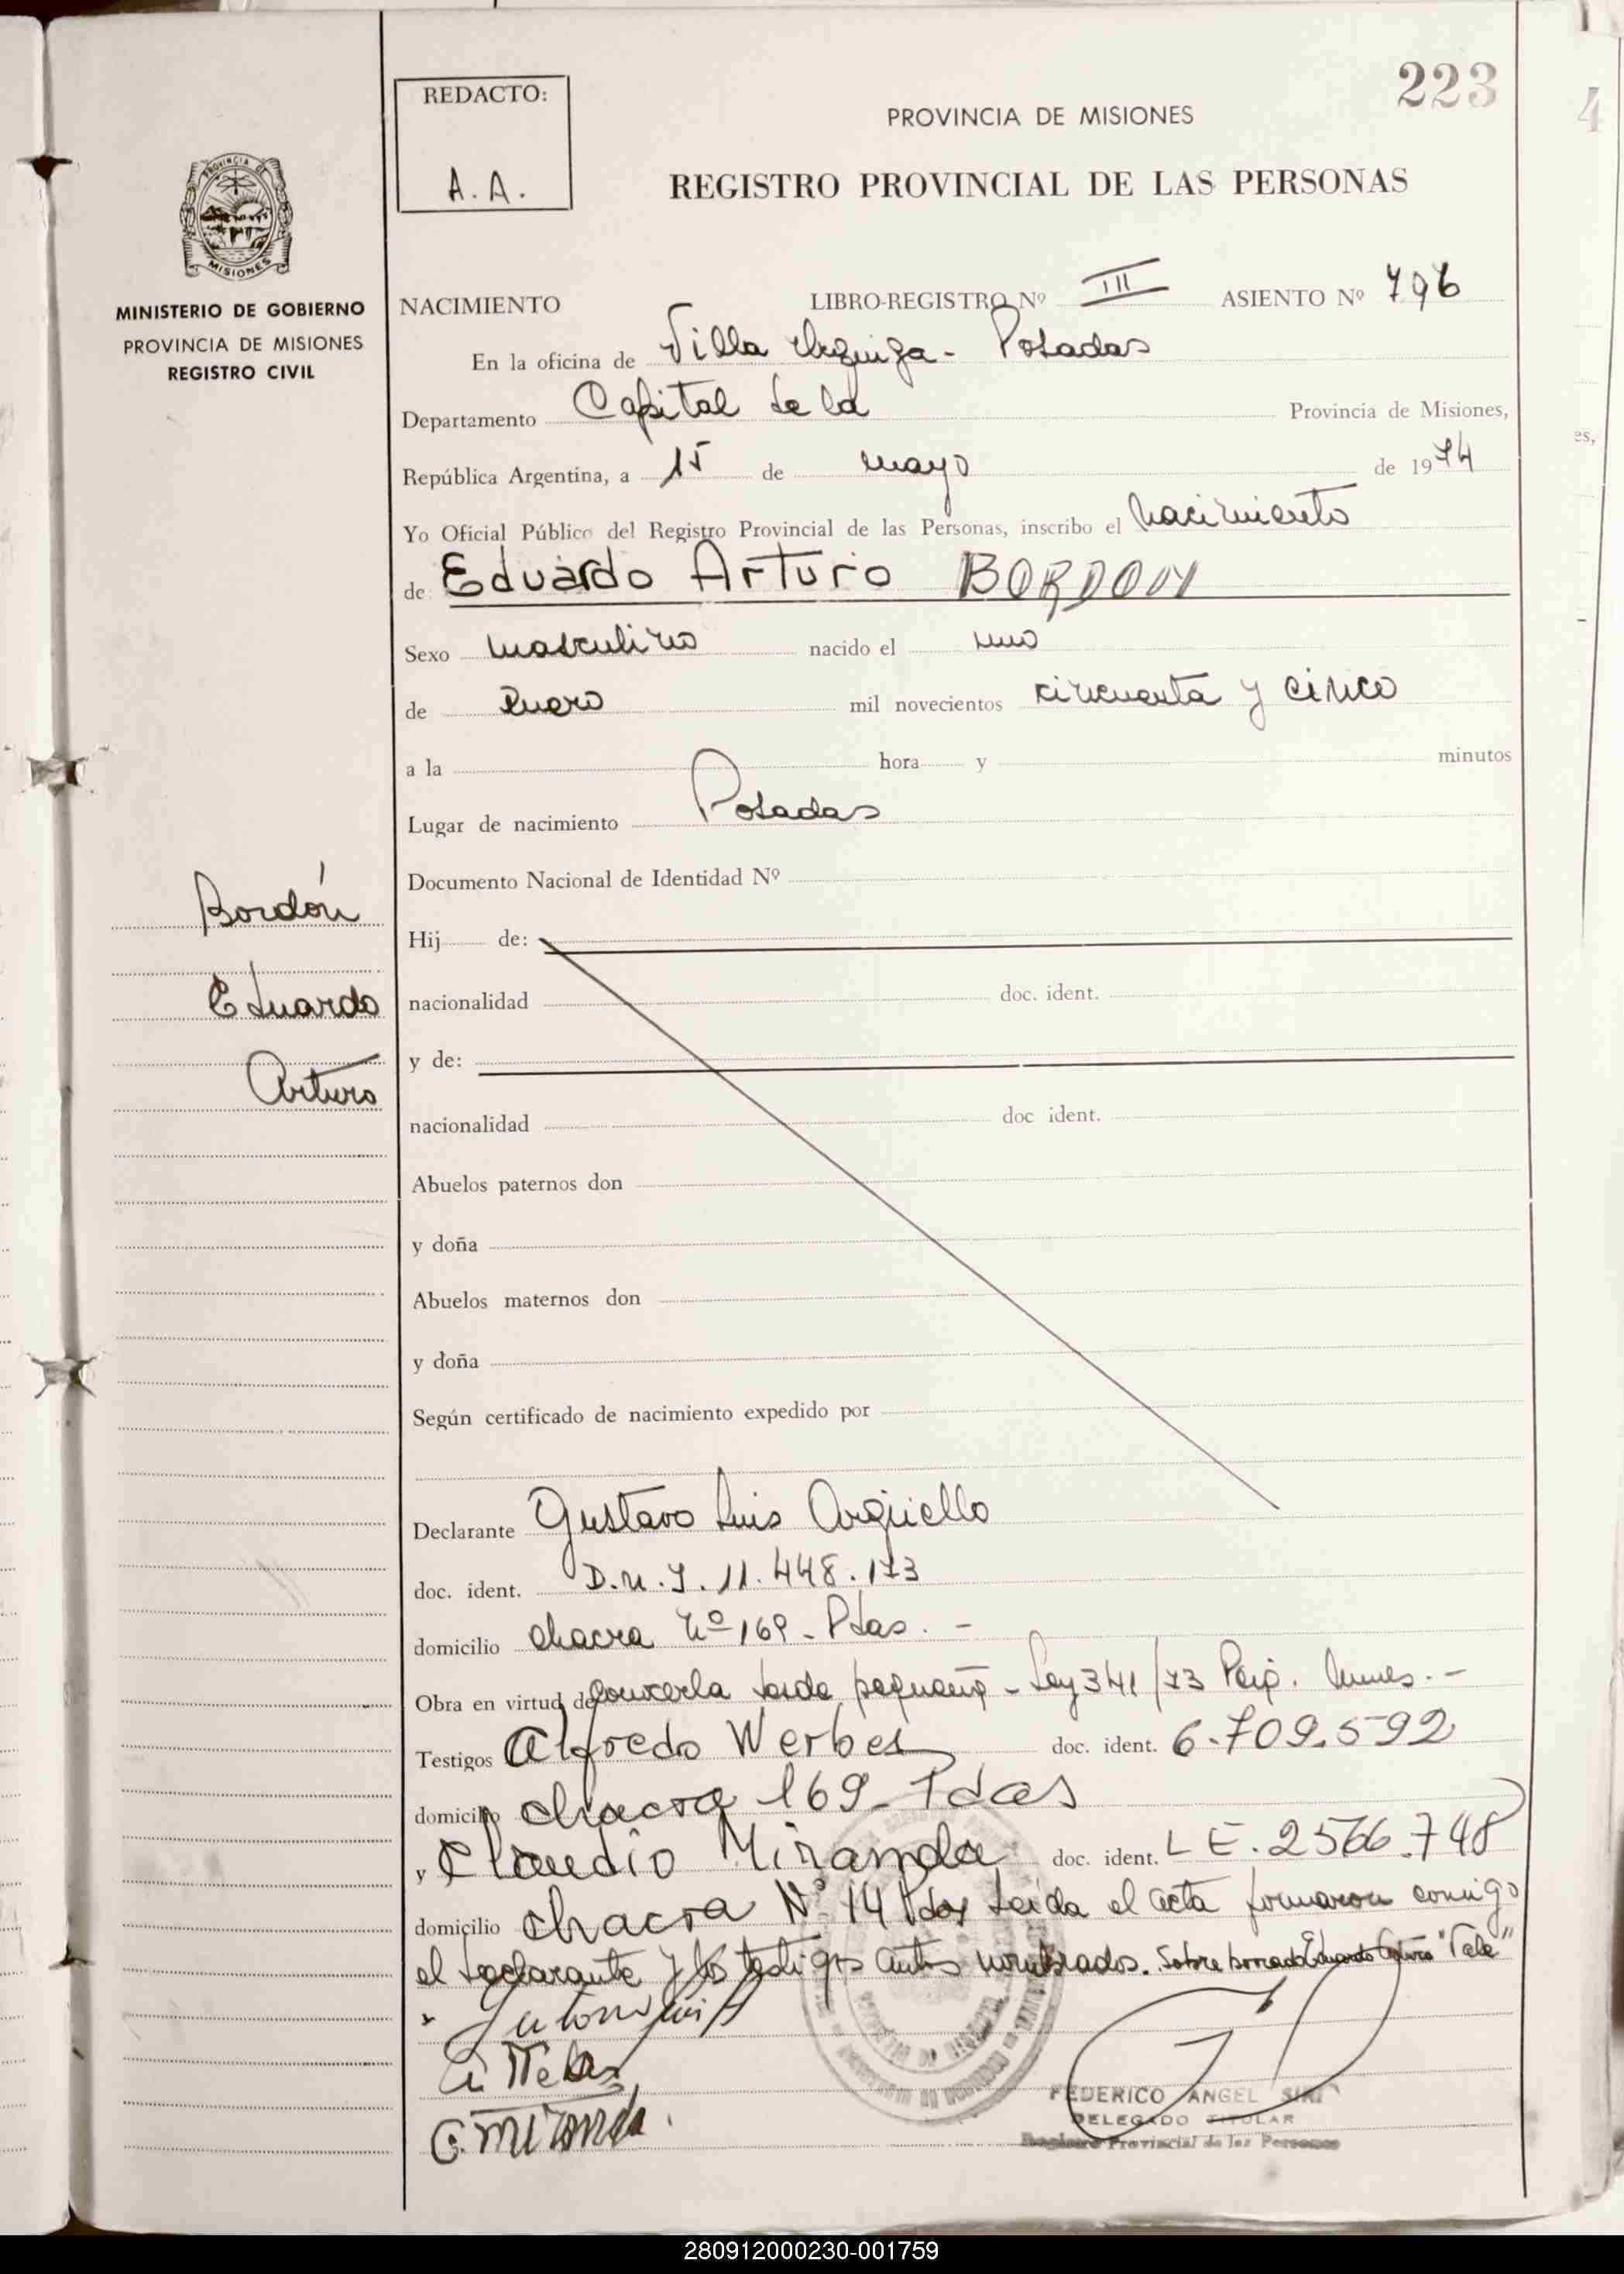 223
4
REDACTO:
A. A.
PROVINCIA DE MISIONES
REGISTRO PROVINCIAL DE LAS PERSONAS
PROVINCIA DE
MISIONES
MINISTERIO DE GOBIERNO
PROVINCIA DE MISIONES
REGISTRO CIVIL
NACIMIENTO LIBRO-REGISTRO Nº III ASIENTO Nº 796
En la oficina de Villa Urquiza - Posadas
Departamento Capital de la Provincia de Misiones,
República Argentina, a 15 de mayo de 1974
es,
Yo Oficial Público del Registro Provincial de las Personas, inscribo el nacimiento
de: Eduardo Arturo BORDON
Sexo masculino nacido el uno
de enero mil novecientos cincuenta y cinco
a la hora y minutos
Lugar de nacimiento Posadas
Documento Nacional de Identidad Nº
Bordón
Eduardo
Arturo
Hij de:
nacionalidad doc. ident.
y de:
nacionalidad doc ident.
Abuelos paternos don
y doña
Abuelos maternos don
y doña
Según certificado de nacimiento expedido por
Declarante Gustavo Luis Argüello
doc. ident. D.N.I. 11.448.173
domicilio chacra Nº 169 - Pdas. -
Obra en virtud de pequeño - Ley 341/73
Testigos Alfredo Werbes doc. ident. 6.709.592
domicilio chacra 169 - Pdas
y Claudio Miranda doc. ident. L E. 2566.748
domicilio chacra Nº 14 Pdas Leída el acta firmaron conmigo
el declarante y los testigos antes nombrados. Sobre borrado Eduardo Arturo "Vale"
C. Miranda.
FEDERICO ANGEL SIRI
DELEGADO TITULAR
Registro Provincial de las Personas
280912000230-001759